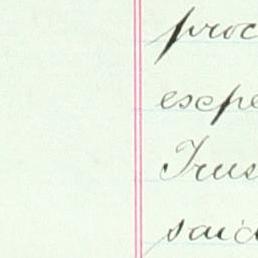 proc
expe
Trus
said